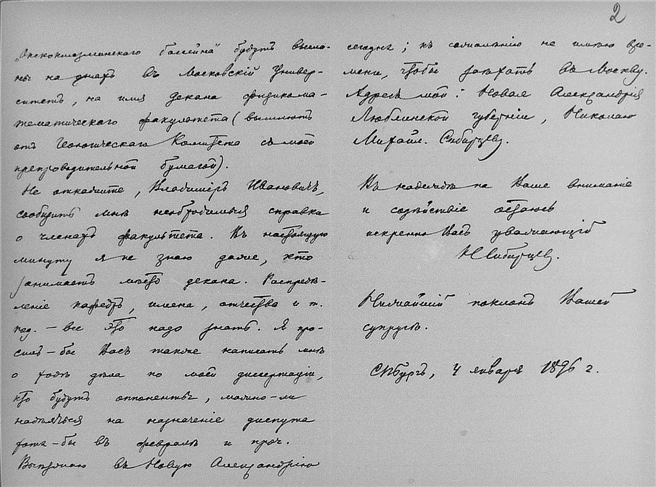 2
Окскоклязминского бассейна будутъ высла-
ны на дняхъ въ Московскій Универ-
ситетъ, на имя декана физикома-
тематическаго факультета (вышлютъ
отъ Геологическаго Комитета съ моей
препроводительной бумагой).
Не откажите, Владиміръ Ивановичъ,
сообщить мнѣ необходимыя справки
о членахъ факультета. Въ настоящую
минуту я не знаю даже, кто
занимаетъ мѣсто декана. Распредѣ-
леніе кафедръ, имена, отчества и т.
под. — все это надо знать. Я про-
силъ-бы Васъ также написать мнѣ
о ходѣ дѣла по моей диссертаціи,
кто будутъ оппоненты, можно-ли
надѣяться на назначеніе диспута
хотя-бы въ февралѣ и проч.
Выѣзжаю въ Новую Александрію
сегодня; къ сожалѣнію не имѣю вре-
мени, чтобы заѣхать въ Москву.
Адресъ мой: Новая Александрія
Люблинской губерніи, Николаю
Михайл. Сибирцеву.
Въ надеждѣ на Ваше вниманіе
и содѣйствіе остаюсь
искренно Васъ уважающій
Н Сибирцевъ.
Нижайшій поклонъ Вашей
супругѣ.
СПбургъ, 4 января 1896 г.